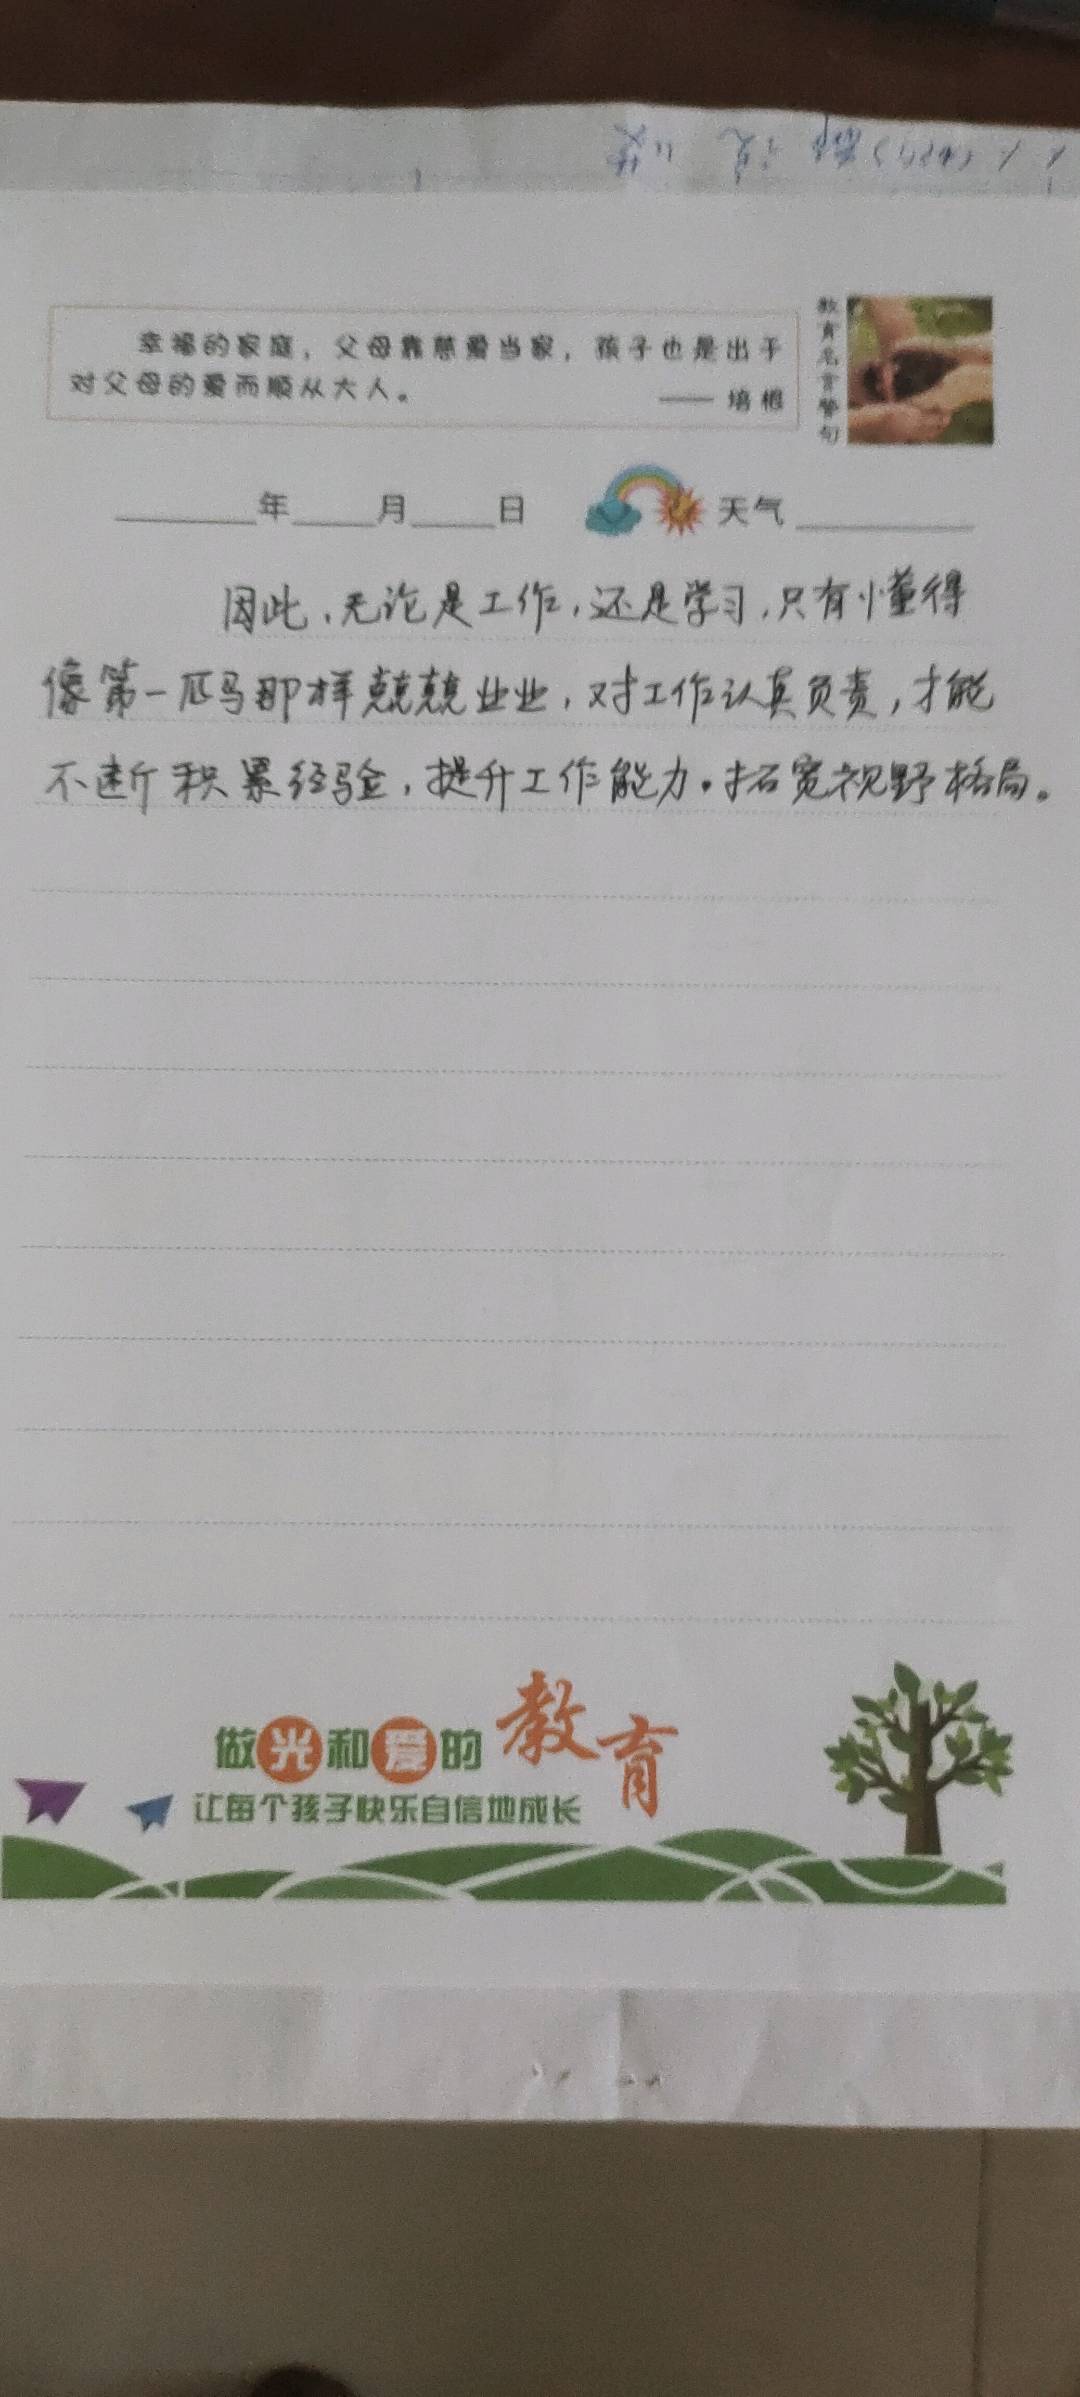 幸福的家庭，父母靠慈爱当家，孩子也是出于
对父母的爱而顺从大人。
—— 培根
教育名言警句
年 月 日 天气
因此，无论是工作，还是学习，只有懂得
像第一匹马那样兢兢业业，对工作认真负责，才能
不断积累经验，提升工作能力。拓宽视野格局。
做光和爱的教育
让每个孩子快乐自信地成长